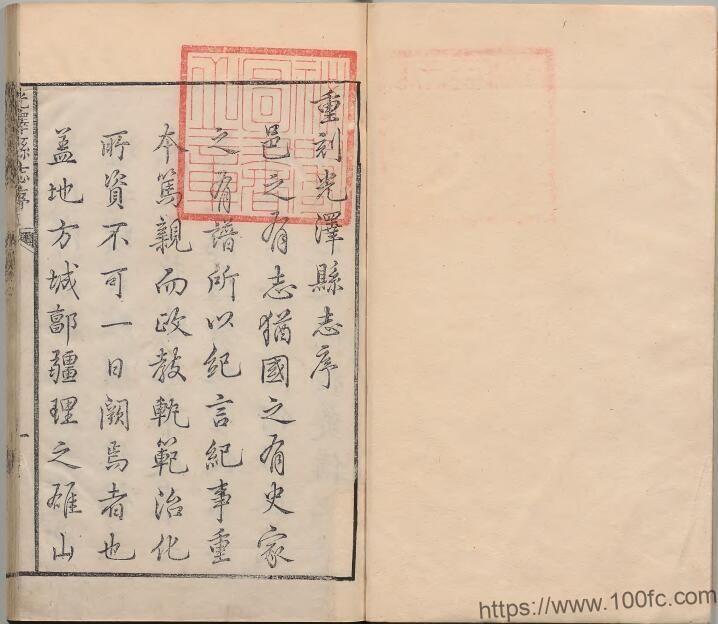 重刻光澤縣志序
邑之有志猶國之有史家
之有譜所以紀言紀事重
本篤親而政教軌範治化
所資不可一日闕焉者也
蓋地方城鄙疆理之雄山
光澤縣志序
一
https://www.100fc.com